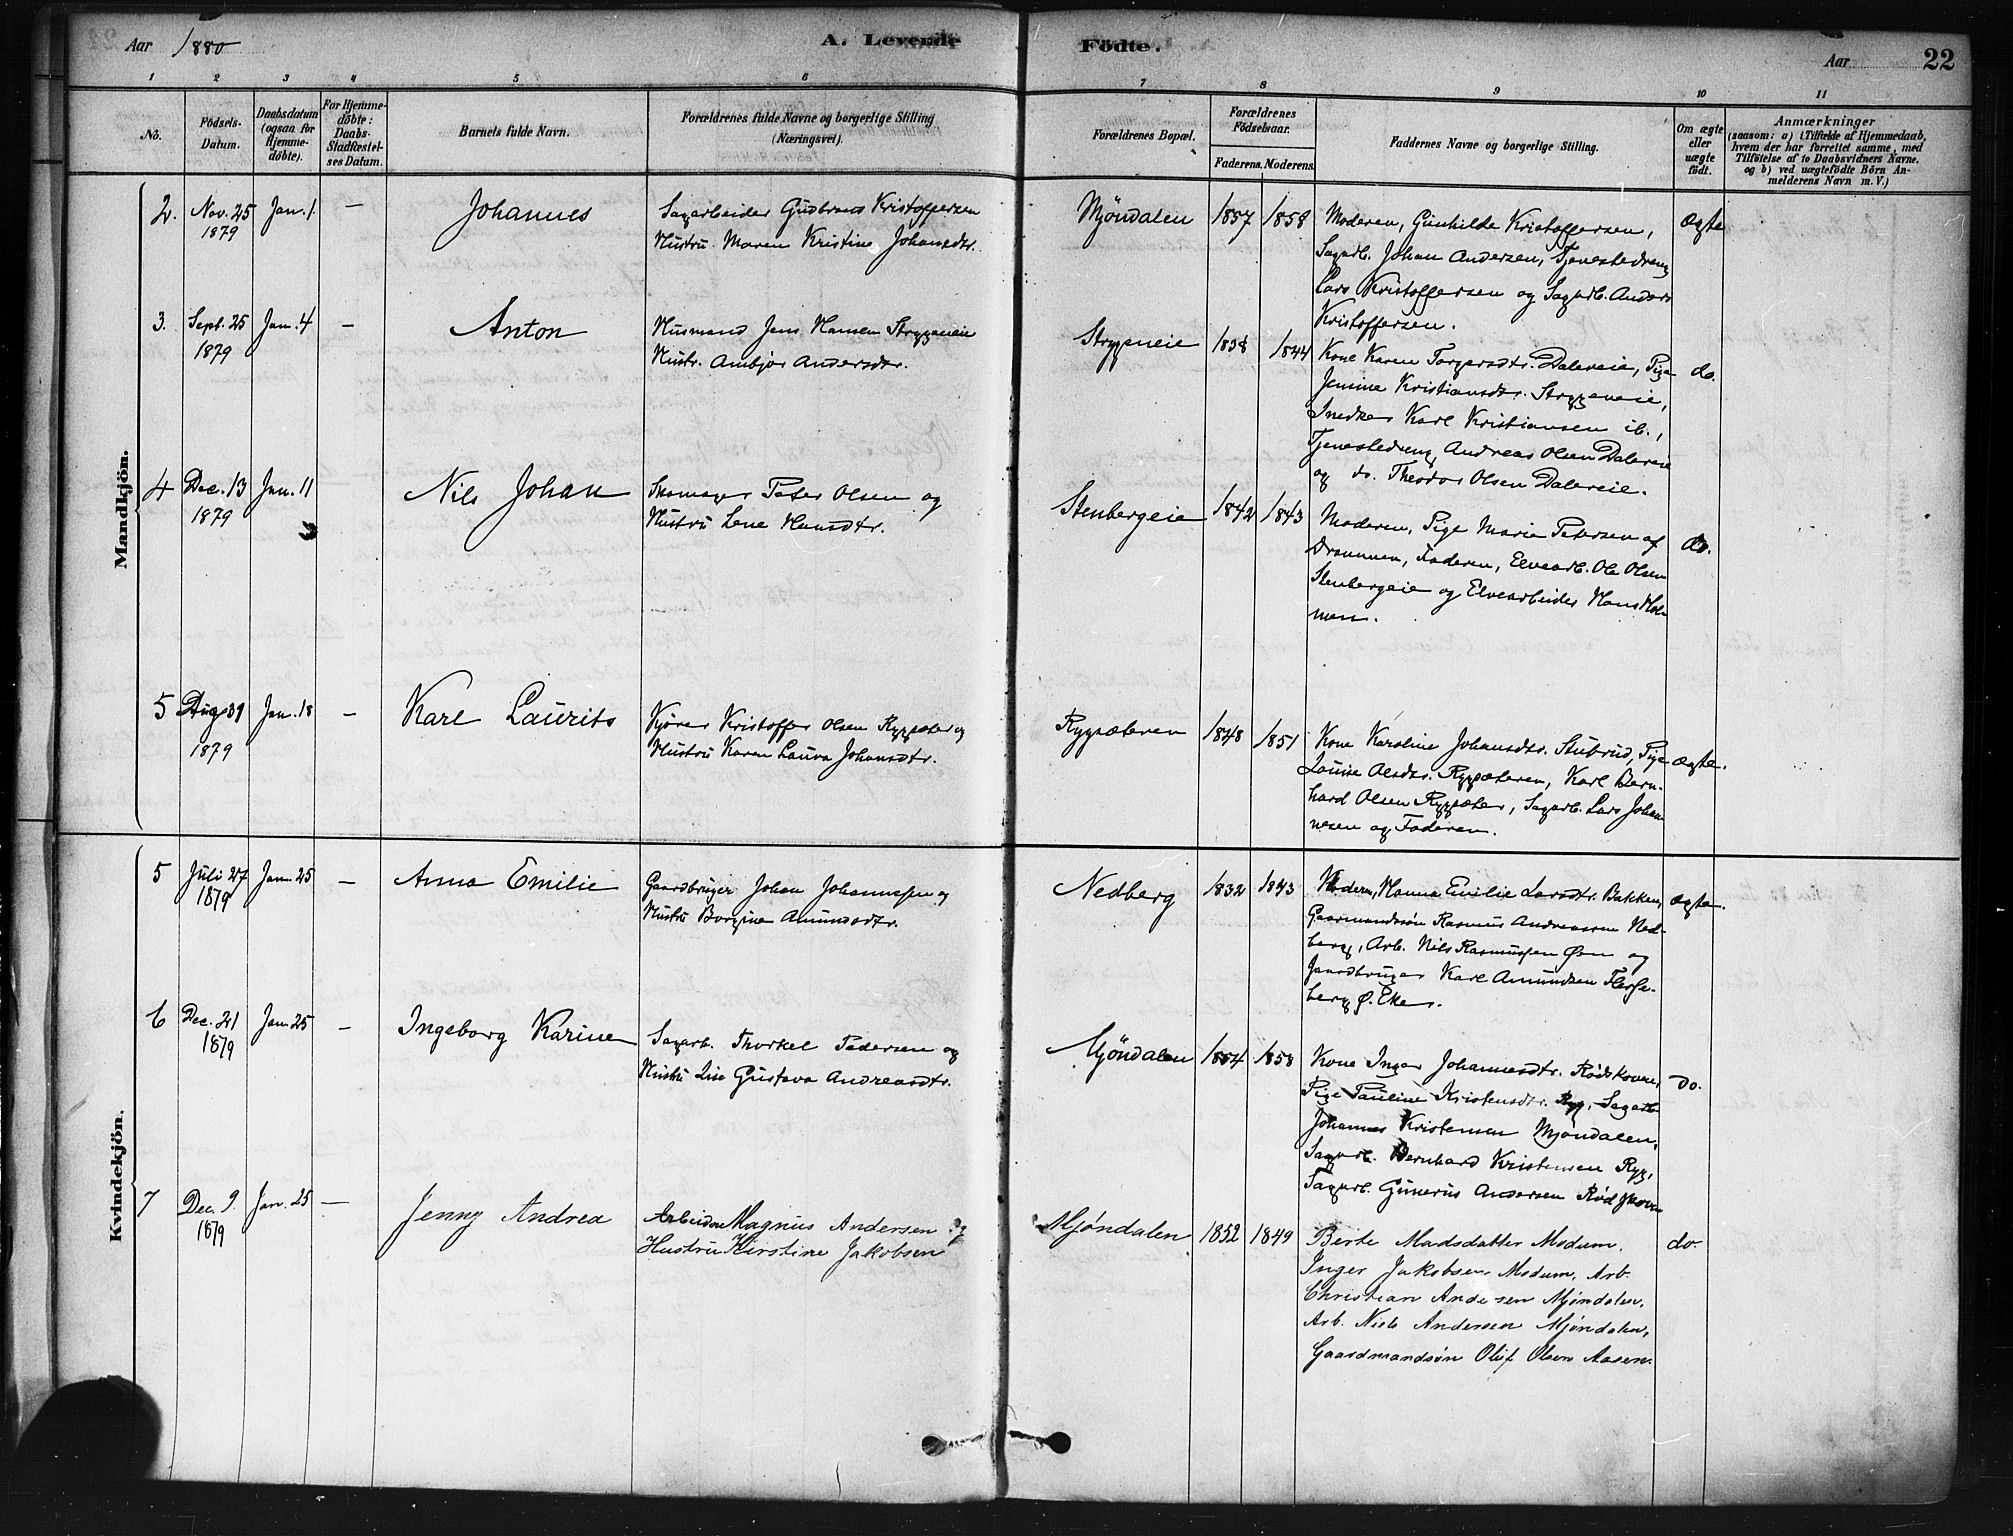 Aar 1880
A. Levende
Födte.
Aar
22
1 2 3 4 5 6 7 8 9 10 11
No.
Födsels-
Datum.
Daabsdatum
(ogsaa for
Hjemme-
döbte).
For Hjemme-
döbte:
Daabs-
Stadfæstel-
ses Datum.
Barnets fulde Navn.
Forældrenes fulde Navne og borgerlige Stilling
(Næringsvei).
Forældrenes Bopæl.
Forældrenes
Födselsaar.
Faderens. Moderens.
Faddernes Navne og borgerlige Stilling.
Om ægte
eller
uægte
født.
Anmærkninger
(saasom: a) i Tilfælde af Hjemmedaab,
hvem der har forrettet samme, med
Tilföielse af to Daabsvidners Navne.
og b) ved uægtefödte Börn An-
melderens Navn m. V.)
Mandkjön.
2. Nov. 25 Jan. 1 —
1879
Johannes
Sagarbeider Gudbrand Kristoffersen
Hustru Maren Kristine Johansdtr.
Mjöndalen 1857 1858
Moderen, Gunhilde Kristoffersen,
Sagarb. Johan Andersen, Tjenestedreng
Lars Kristoffersen og Sagarb. Anders
Kristoffersen.
ægte
3. Sept. 25 Jan. 4 —
1879
Anton
Husmand Jens Hansen Stryggneie
Hustr. Ambjør Andersdtr.
Stryggneie 1838 1844
Kone Karen Torgersdtr. Dalereie, Pige
Jensine Kristiansdtr. Stryggneie,
Snedker Karl Kristiansen ib.,
Tjenestedreng Andreas Olsen Dalereie
og do. Theodor Olsen Dalereie.
do.
4 Dec. 13 Jan. 11
1879
Nils Johan
Skomager Peter Olsen og
Hustru Lene Hansdtr.
Stenbergeie 1842 1843
Moderen, Pige Marie Petersen af
Drammen, Faderen, Elvearb. Ole Olsen
Stenbergeie og Elvearbeider Hans Hol-
men.
do.
5 Aug 31 Jan. 18 —
1879
Karl Laurits
Kjører Kristoffer Olsen Ryggsæter og
Hustru Karen Laura Johansdtr.
Ryggsæteren 1848 1851
Kone Karoline Johansdtr. Stubrud, Pige
Louise Olsdtr. Ryggsæteren, Karl Bern-
hard Olsen Ryggsæter, Sagarb. Lars Johan-
nesen og Faderen.
ægte.
Kvindekjön.
5 Juli 27 Jan. 25 —
1879
Anna Emilie
Gaardbruger Johan Johannesen og
Hustru Borgine Amundsdtr.
Nedberg 1832 1843
Moderen, Hanna Emilie Larsdtr. Bakken,
Gaarmandssøn Rasmus Andreassen Ned-
berg, Arb. Nils Rasmussen Øen og
Gaardbruger Karl Amundsen
berg Ø. Eker.
ægte.
6 Dec. 21 Jan. 25 —
1879
Ingeborg Karine
Sagarb. Thorkel Pedersen og
Hustru Lise Gustava Andreasdtr.
Mjöndalen 1854 1858
Kone Inger Johannesdtr. Rødskoven,
Pige Pauline Kristensdtr. Ryg, Sagarb.
Johannes Kristensen Mjöndalen,
Sagarb. Bernhard Kristensen Ryg,
Sagarb. Gunerius Andersen Rødskoven
do.
7 Dec. 9. Jan. 25 —
1879
Jenny Andrea
Arbeider Magnus Andersen og
Hustru Kirstine Jakobsen
Mjøndalen 1852 1849
Berte Madsdatter Modum.
Inger Jakobsen Modum, Arb.
Christian Andersen Mjøndalen,
Arb. Niels Andersen Mjøndalen,
Gaardmandsøn Oluf Olsen Aasen.
do.